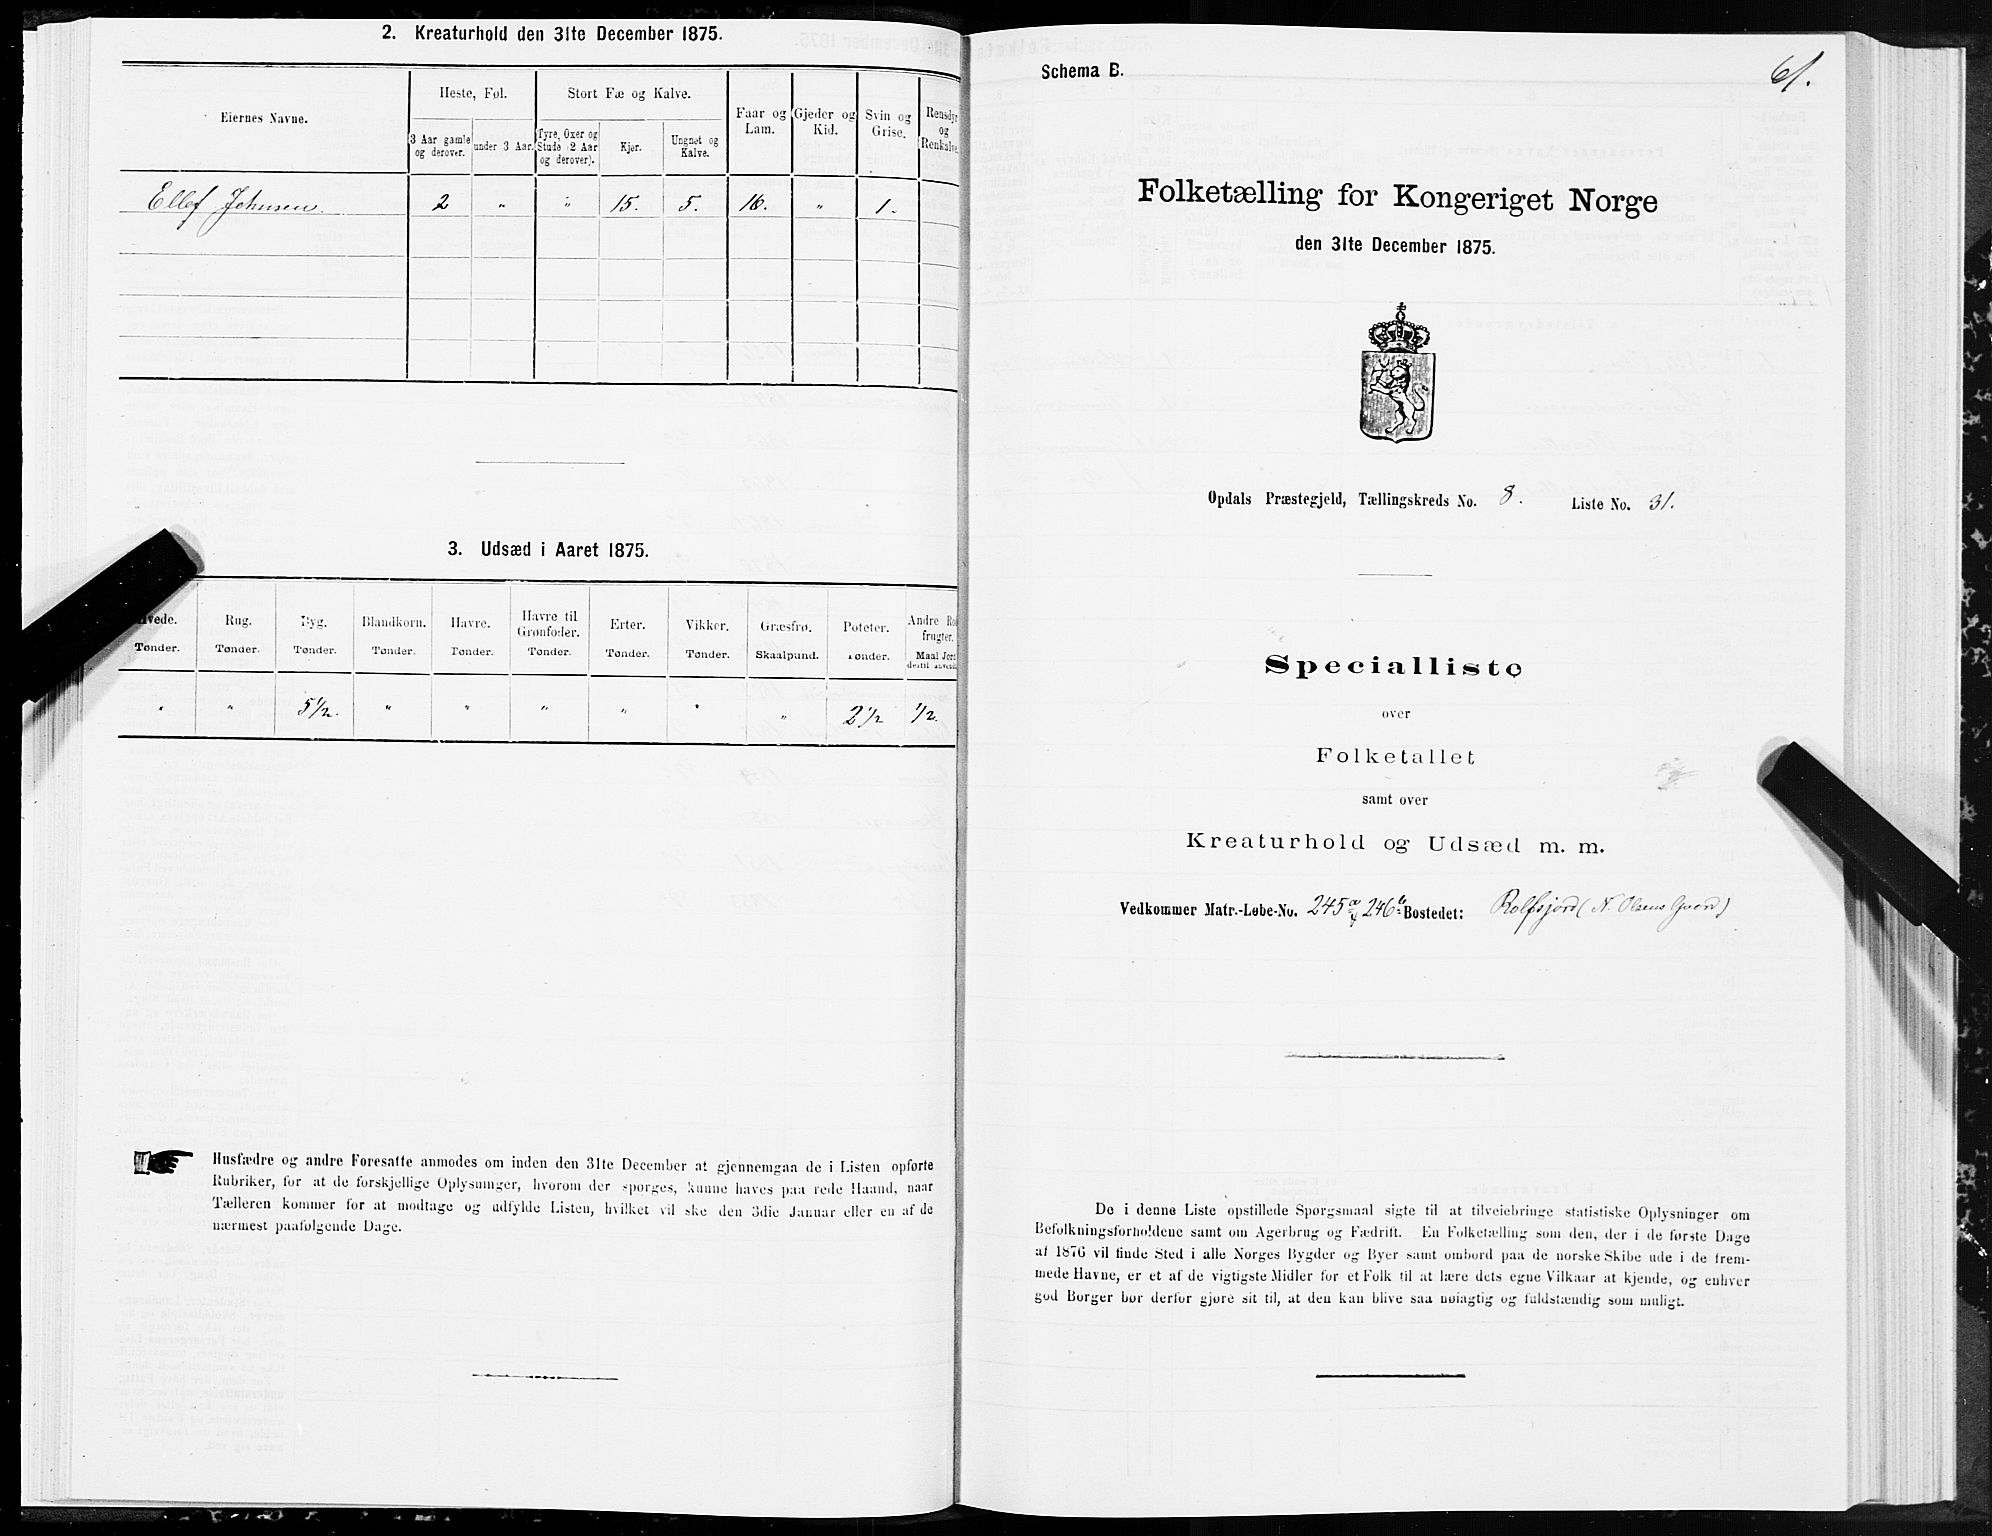 2. Kreaturhold den 31te December 1875.
Eiernes Navne.
Heste, Føl.
Stort Fæ og Kalve.
Faar og Lam.
Gjeder og Kid.
Svin og Grise.
Rensdyr og Renkalve.
3 Aar gamle og derover.
under 3 Aar.
Tyre, Oxer og Stude (2 Aar og derover).
Kjør.
Ungnøt og Kalve.
Ellef Johnsen. 2 " " 15. 5. 16. " 1.
3. Udsæd i Aaret 1875.
Hvede. Rug. Byg. Blandkorn. Havre. Havre til Grønfoder. Erter. Vikker. Græsfrø. Poteter. Andre Ro frugter.
Tønder. Tønder. Tønder. Tønder. Tønder. Tønder. Tønder. Tønder. Skaalpund. Tønder. Maal Jord dertil anvend
" " 5 1/2. " " " " " " 2 1/2 1/2.
Husfædre og andre Foresatte anmodes om inden den 31te December at gjennemgaa de i Listen opførte
Rubriker, for at de forskjellige Oplysninger, hvorom der spørges, kunne haves paa rede Haand, naar
Tælleren kommer for at modtage og udfylde Listen, hvilket vil ske den 3die Januar eller en af de
nærmest paafølgende Dage.
Schema B.
61.
Folketælling for Kongeriget Norge
den 31te December 1875.
Opdals Præstegjeld, Tællingskreds No. 8. Liste No. 31.
Specialliste
over
Folketallet
samt over
Kreaturhold og Udsæd m. m.
Vedkommer Matr.-Løbe-No. 245a & 246b Bostedet: Rolfsjord (N. Olsens Gaard)
De i denne Liste opstillede Spørgsmaal sigte til at tilveiebringe statistiske Oplysninger om
Befolkningsforholdene samt om Agerbrug og Fædrift. En Folketælling som den, der i de første Dage
af 1876 vil finde Sted i alle Norges Bygder og Byer samt ombord paa de norske Skibe ude i de frem-
mede Havne, er et af de vigtigste Midler for et Folk til at lære dets egne Vilkaar at kjende, og enhver
god Borger bør derfor gjøre sit til, at den kan blive saa nøiagtig og fuldstændig som muligt.